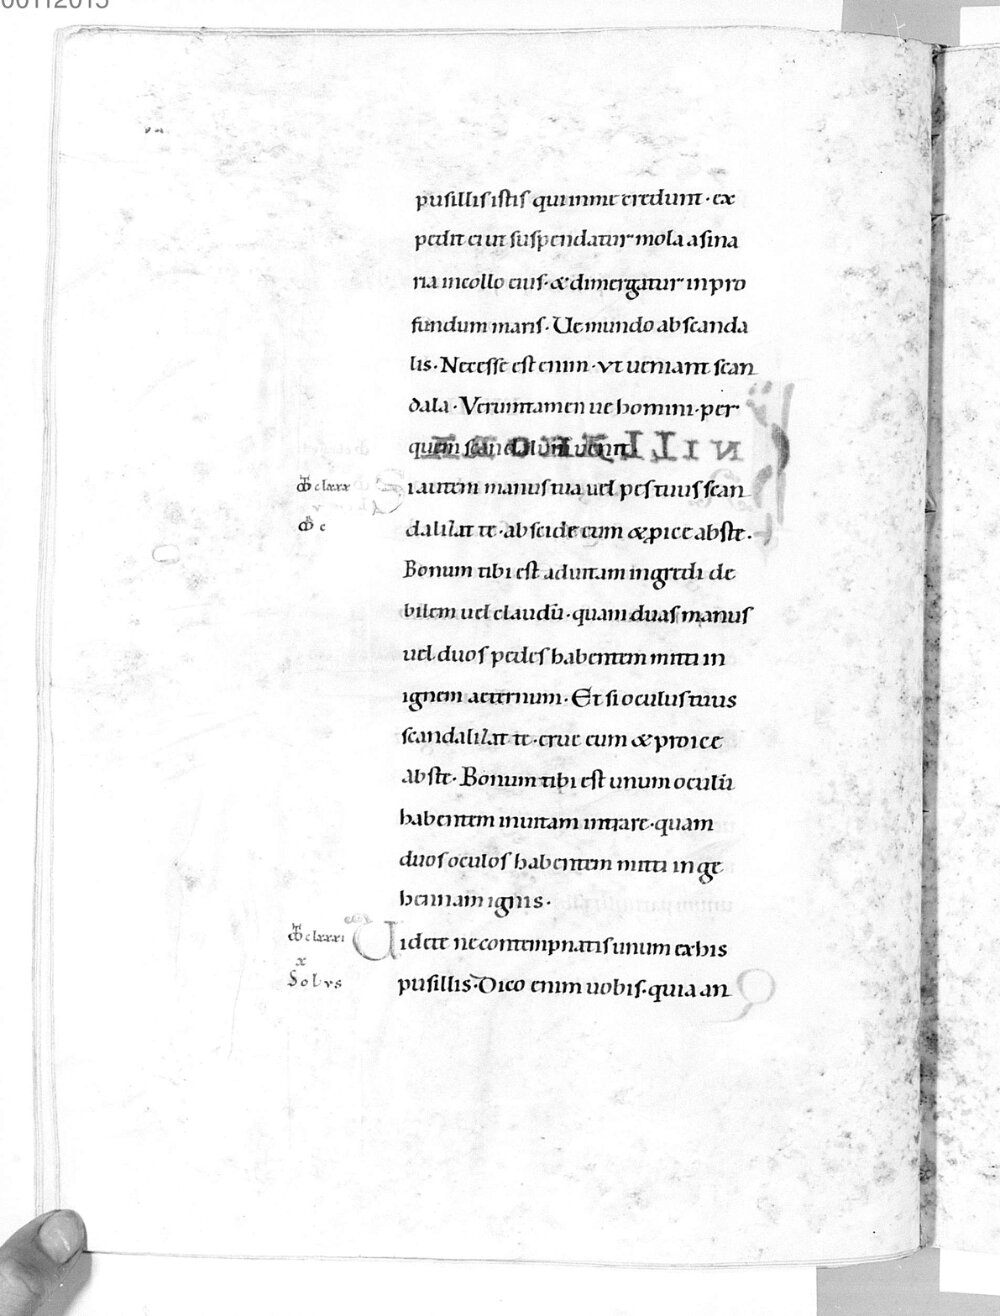 00112015
pusillis istis qui in me credunt · ex
pedit ei ut suspendatur mola asina
ria in collo eius · & dimergatur in pro
fundum maris · Ue mundo ab scanda
lis · Necesse est enim · vt ueniant scan
dala · Veruntamen ue homini · per
quem scandalum uenit
clxxx Si autem manus tua uel pes tuus scan
c dalizat te · abscide eum & pice abste ·
Bonum tibi est aduitam ingredi de
bilem uel claudū · quam duas manus
uel duos pedes habentem mitti in
ignem aeternum · Et si oculus tuus
scandalizat te · erue eum & proice
abste · Bonum tibi est unum oculū
habentem inuitam intrare · quam
duos oculos habentem mitti in ge
hennam ignis ·
clxxxi Uidete ne contempnatis unum ex his
x
Solvs pusillis · Dico enim uobis · quia an